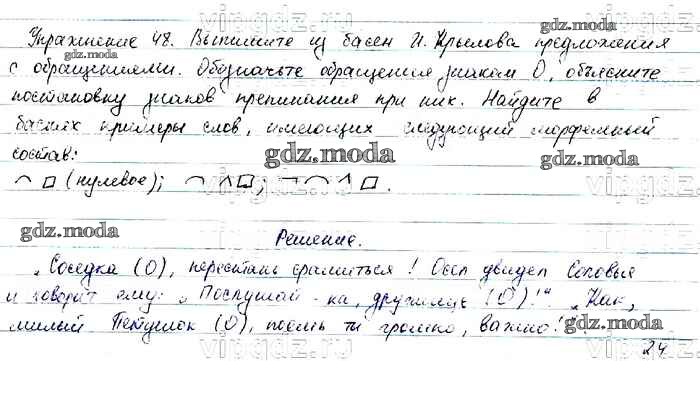 Упражнение 48. Выпишите из басен И. Крылова предложения
с обращениями. Обозначьте обращения знаком О, объясните
постановку знаков препинания при них. Найдите в
баснях примеры слов, имеющих следующий морфемный
состав:
(нулевое);
Решение.
„Соседка (О), перестань срамиться! Осёл увидел Соловья
и говорит ему: „Послушай-ка, дружище (О)!" „Как,
милый Петушок (О), поёшь ты громко, важно!"
24
gdz.moda
gdz.moda
gdz.moda
gdz.moda
gdz.moda
gdz.moda
vipgdz.ru
vipgdz.ru
vipgdz.ru
vipgdz.ru
vipgdz.ru
vipgdz.ru